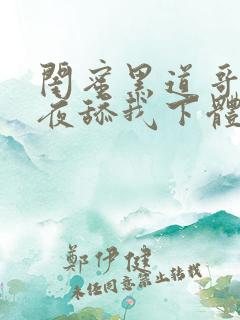 閨蜜黑道哥
夜舔我下體
鄭伊健
未經同意禁止轉載